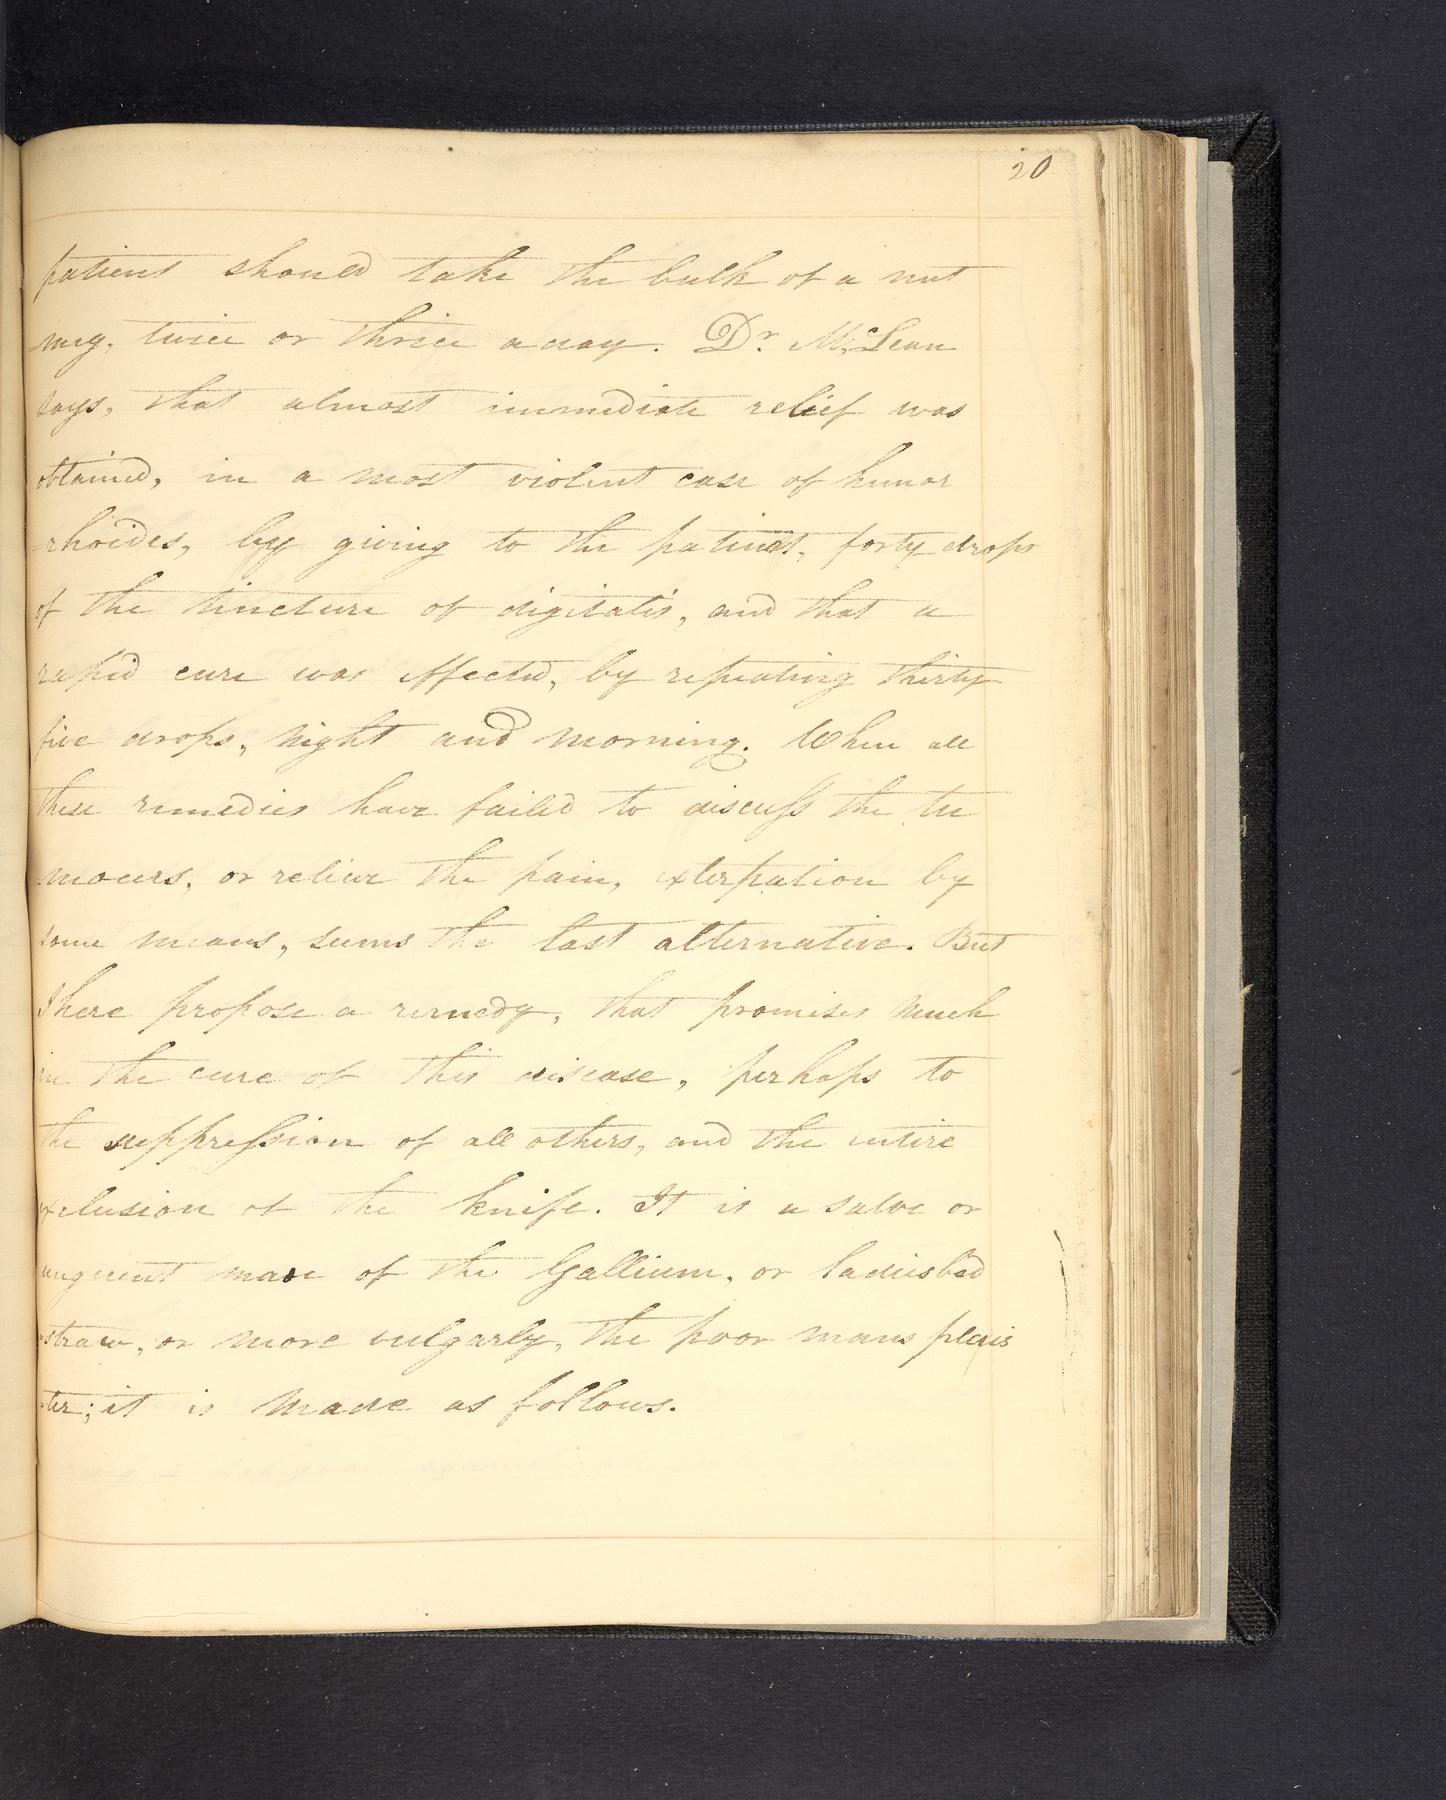 20
patient should take the bulk of a nut
meg, twice or thrice a day. Dr. McLean
says, that almost immediate relief was
obtained, in a most violent case of hemor
=rhoides, by giving to the patient, forty drops
of the tincture of digitalis, and that a
rapid cure was effected, by repeating thirty
five drops, night and morning. When all
these remedies have failed to discuss the tu
mours, or relieve the pain, exterpation by
some means, seems the last alternative. But
I here propose a remedy, that promises much
in the cure of this disease, perhaps to
the suppression of all others, and the entire
exclusion of the knife. It is a salve or
unguent made of the Gallium, or ladiesbed
=straw, or more vulgarly, the poor mans plais
=ter; it is made as follows.